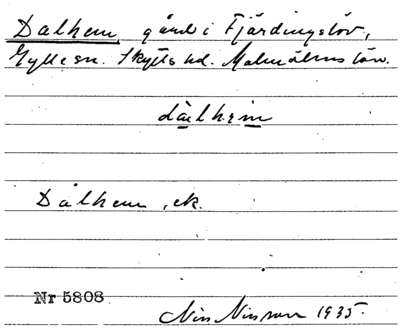 Dalhem, gård i Fjärdingslöv,
Gylle sn. Skytts hd. Malmöhus län.
Dalhem, ek.
Nr 5808
Nils Nilsson 1935.